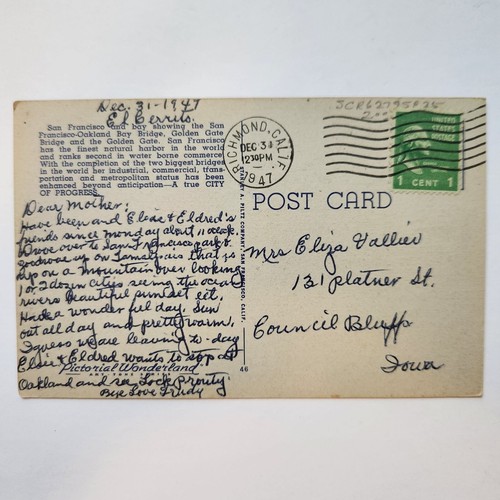 Dec. 31-1947
El Cerrito.
San Francisco and bay showing the San
Francisco-Oakland Bay Bridge, Golden Gate
Bridge and the Golden Gate. San Francisco
has the finest natural harbor in the world
and ranks second in water borne commerce.
With the completion of the two biggest bridges
in the world her industrial, commercial, trans-
portation and metropolitan status has been
enhanced beyond anticipation—A true CITY
OF PROGRESS.
Dear Mother;
Have been and Elsie & Eldred's
friends since Monday about 11 oclock.
Drove over to San Francisco park &
up on Tamalpais that is
up on a Mountain over looking
1 or 2 dozen cities seeing the ocean
rivers beautiful sun set ect.
Had a wonderful day. Sun
out all day and pretty warm.
I guess we are leaving to-day
Elsie & Eldred wants to stop at
Pictorial Wonderland
Oakland and see Jack Prouty.
Bye Love Trudy
46
RICHMOND, CALIF.
DEC 31
1230PM
1947
UNITED
STATES
POSTAGE
1 CENT 1
POST CARD
Mrs Eliza Vallier
131 platner St.
Council Bluffs
Iowa